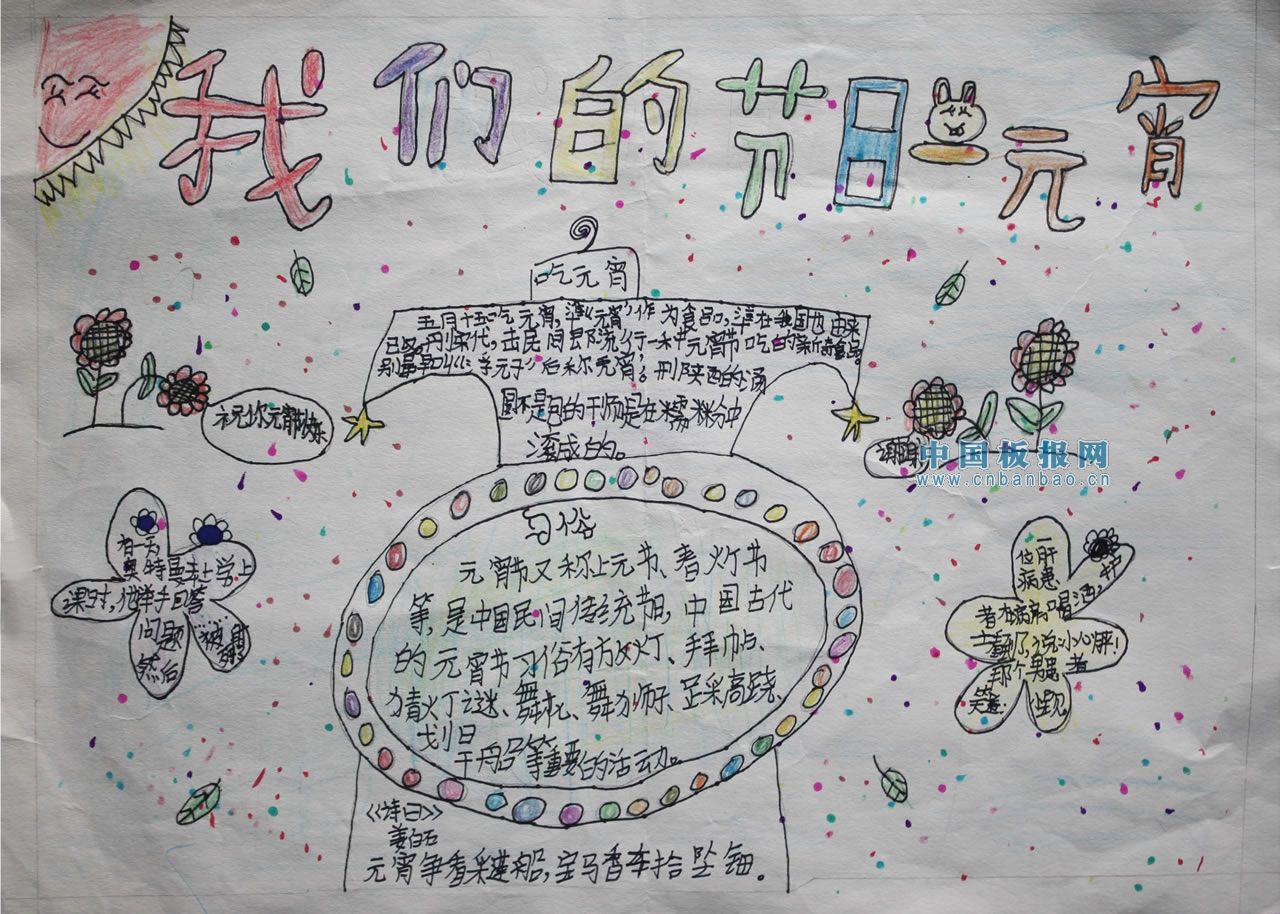 我们的节日元宵
吃元宵
五月十五吃元宵,"元宵"作为食品,在我国也由来
已久,到宋代,民间即流行一种元宵节吃的新奇食品。
后称元宵。
不是包的 是在 粉中
滚成的。
祝你元宵节快乐
谢谢
中国板报网
www.cnbanbao.cn
习俗
元宵节又称上元节、春灯节
等,是中国民间传统充节日,中国古代
的元宵节习俗有放灯、拜帖、
猜灯谜、舞龙、舞狮子、踩高跷、
划旱
船等重要的活动。
有一天
奥特曼去上学上
课时,他举手回答
问题
然后
一
位肝
病患
者在病房喝酒,护
士看到了,说小心肝!
那个患者
笑道:
《诗曰》
姜白石
元宵争看采莲船,宝马香车拾坠钿。